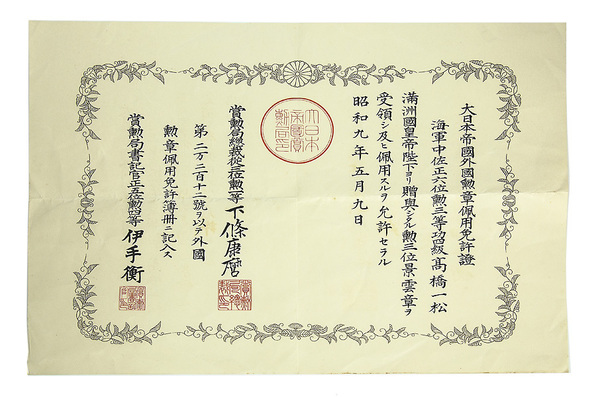 大日本帝國外國勲章佩用免許證
海軍中佐正六位勲三等功四級髙橋一松
滿洲國皇帝陛下ヨリ贈與シタル勲三位景雲章ヲ
受領シ及ヒ佩用スルヲ允許セラル
昭和九年五月九日
大日本帝國賞勲局印
賞勲局總裁從三位勲二等下條康麿
第二万二百十二號ヲ以テ外國
勲章佩用免許簿冊ニ記入ス
賞勲局書記官正五位勲四等伊手衡